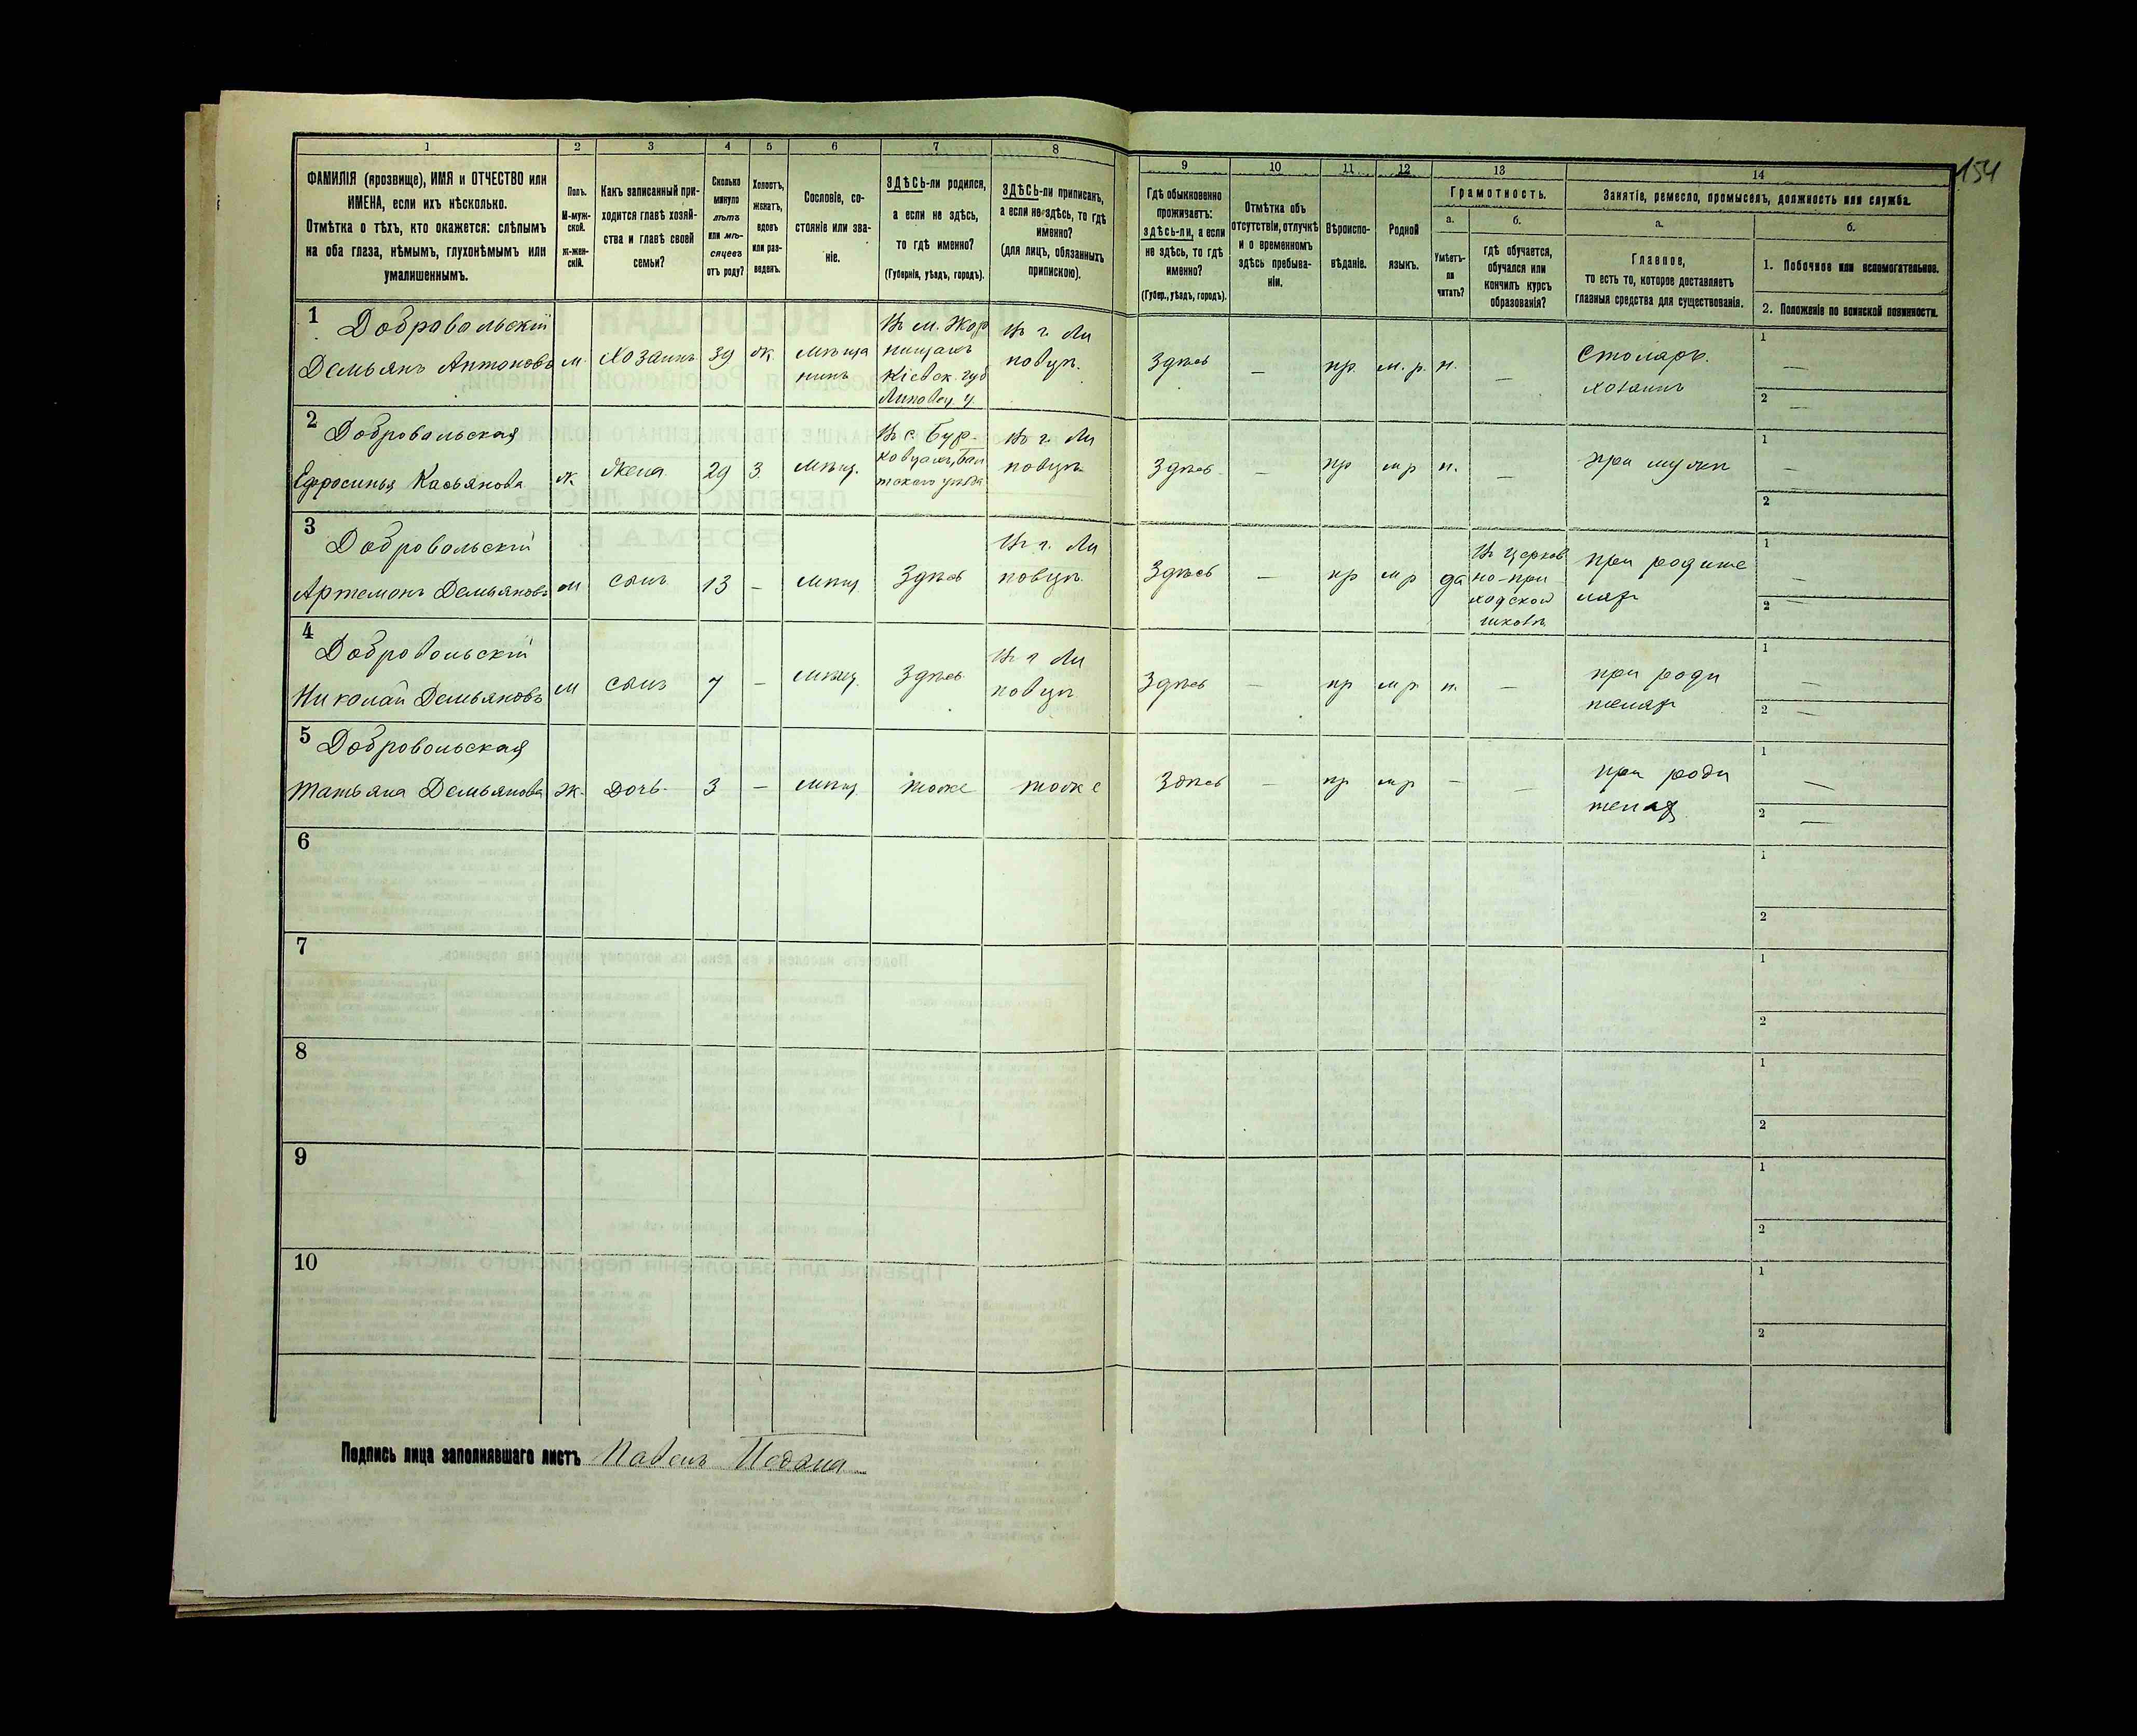 154
1 2 3 4 5 6 7 8 9 10 11 12 13 14
ФАМИЛІЯ (прозвище), ИМЯ и ОТЧЕСТВО или
ИМЕНА, если ихъ нѣсколько.
Отмѣтка о тѣхъ, кто окажется: слѣпымъ
на оба глаза, нѣмымъ, глухонѣмымъ или
умалишеннымъ.
Полъ.
М-муж-
ской.
Ж-жен-
скій.
Какъ записанный при-
ходится главѣ хозяй-
ства и главѣ своей
семьи?
Сколько
минуло
лѣтъ
или мѣ-
сяцевъ
отъ роду?
Холостъ,
женатъ,
вдовъ
или раз-
веденъ.
Сословіе, со-
стояніе или зва-
ніе.
ЗДѢСЬ-ли родился,
а если не здѣсь,
то гдѣ именно?
(Губернія, уѣздъ, городъ).
ЗДѢСЬ-ли приписанъ,
а если не здѣсь, то гдѣ
именно?
(для лицъ, обязанныхъ
припискою).
Гдѣ обыкновенно
проживаетъ:
здѣсь-ли, а если
не здѣсь, то гдѣ
именно?
(Губер., уѣздъ, городъ).
Отмѣтка объ
отсутствіи, отлучкѣ
и о временномъ
здѣсь пребыва-
ніи.
Вѣроиспо-
вѣданіе.
Родной
языкъ.
Грамотность.
а.
Умѣетъ-
ли
читать?
б.
гдѣ обучается,
обучался или
кончилъ курсъ
образованія?
Занятіе, ремесло, промыселъ, должность или служба.
а.
Главное,
то есть то, которое доставляетъ
главныя средства для существованія.
б.
1. Побочное или вспомогательное.
2. Положеніе по воинской повинности.
1 Добровольскій
Демьянъ Антоновъ
м
Хозяинъ
39
ж
мѣща
нинъ
Въ м. Жор
нищахъ
Кіевск. губ
Липовец. у
въ г. Ли
повцѣ.
Здѣсь
—
пр.
м. р.
н.
—
Столяръ.
хозяинъ
1 —
2 —
2 Добровольская
Ефросинья Касьянова
ж
Жена
29
З.
мѣщ.
Въ с. Бур-
ковцахъ, Бал
тскаго уѣзда
въ г. Ли
повцѣ
Здѣсь
—
пр
мр
н.
—
при мужѣ
1 —
2
3 Добровольскій
Артемонъ Демьяновъ
м
сынъ
13
—
мѣщ
Здѣсь
Въ г. Ли
повцѣ.
Здѣсь
—
пр
мр
да
Въ церков
но-при
ходской
школѣ
при родите
ляхъ
1 —
2 —
4 Добровольскій
Николай Демьяновъ
м
сынъ
7
—
мѣщ.
Здѣсь
Въ г Ли
повцѣ
Здѣсь
—
пр
мр
н.
—
при роди
теляхъ
1 —
2 —
5 Добровольская
Татьяна Демьянова
ж.
дочь.
3
—
мѣщ
тоже
тоже
Здѣсь
—
пр
мр
—
—
при роди
теляхъ
1 —
2 —
6
1
2
7
1
2
8
1
2
9
1
2
10
1
2
Подпись лица заполнявшаго листъ Павелъ